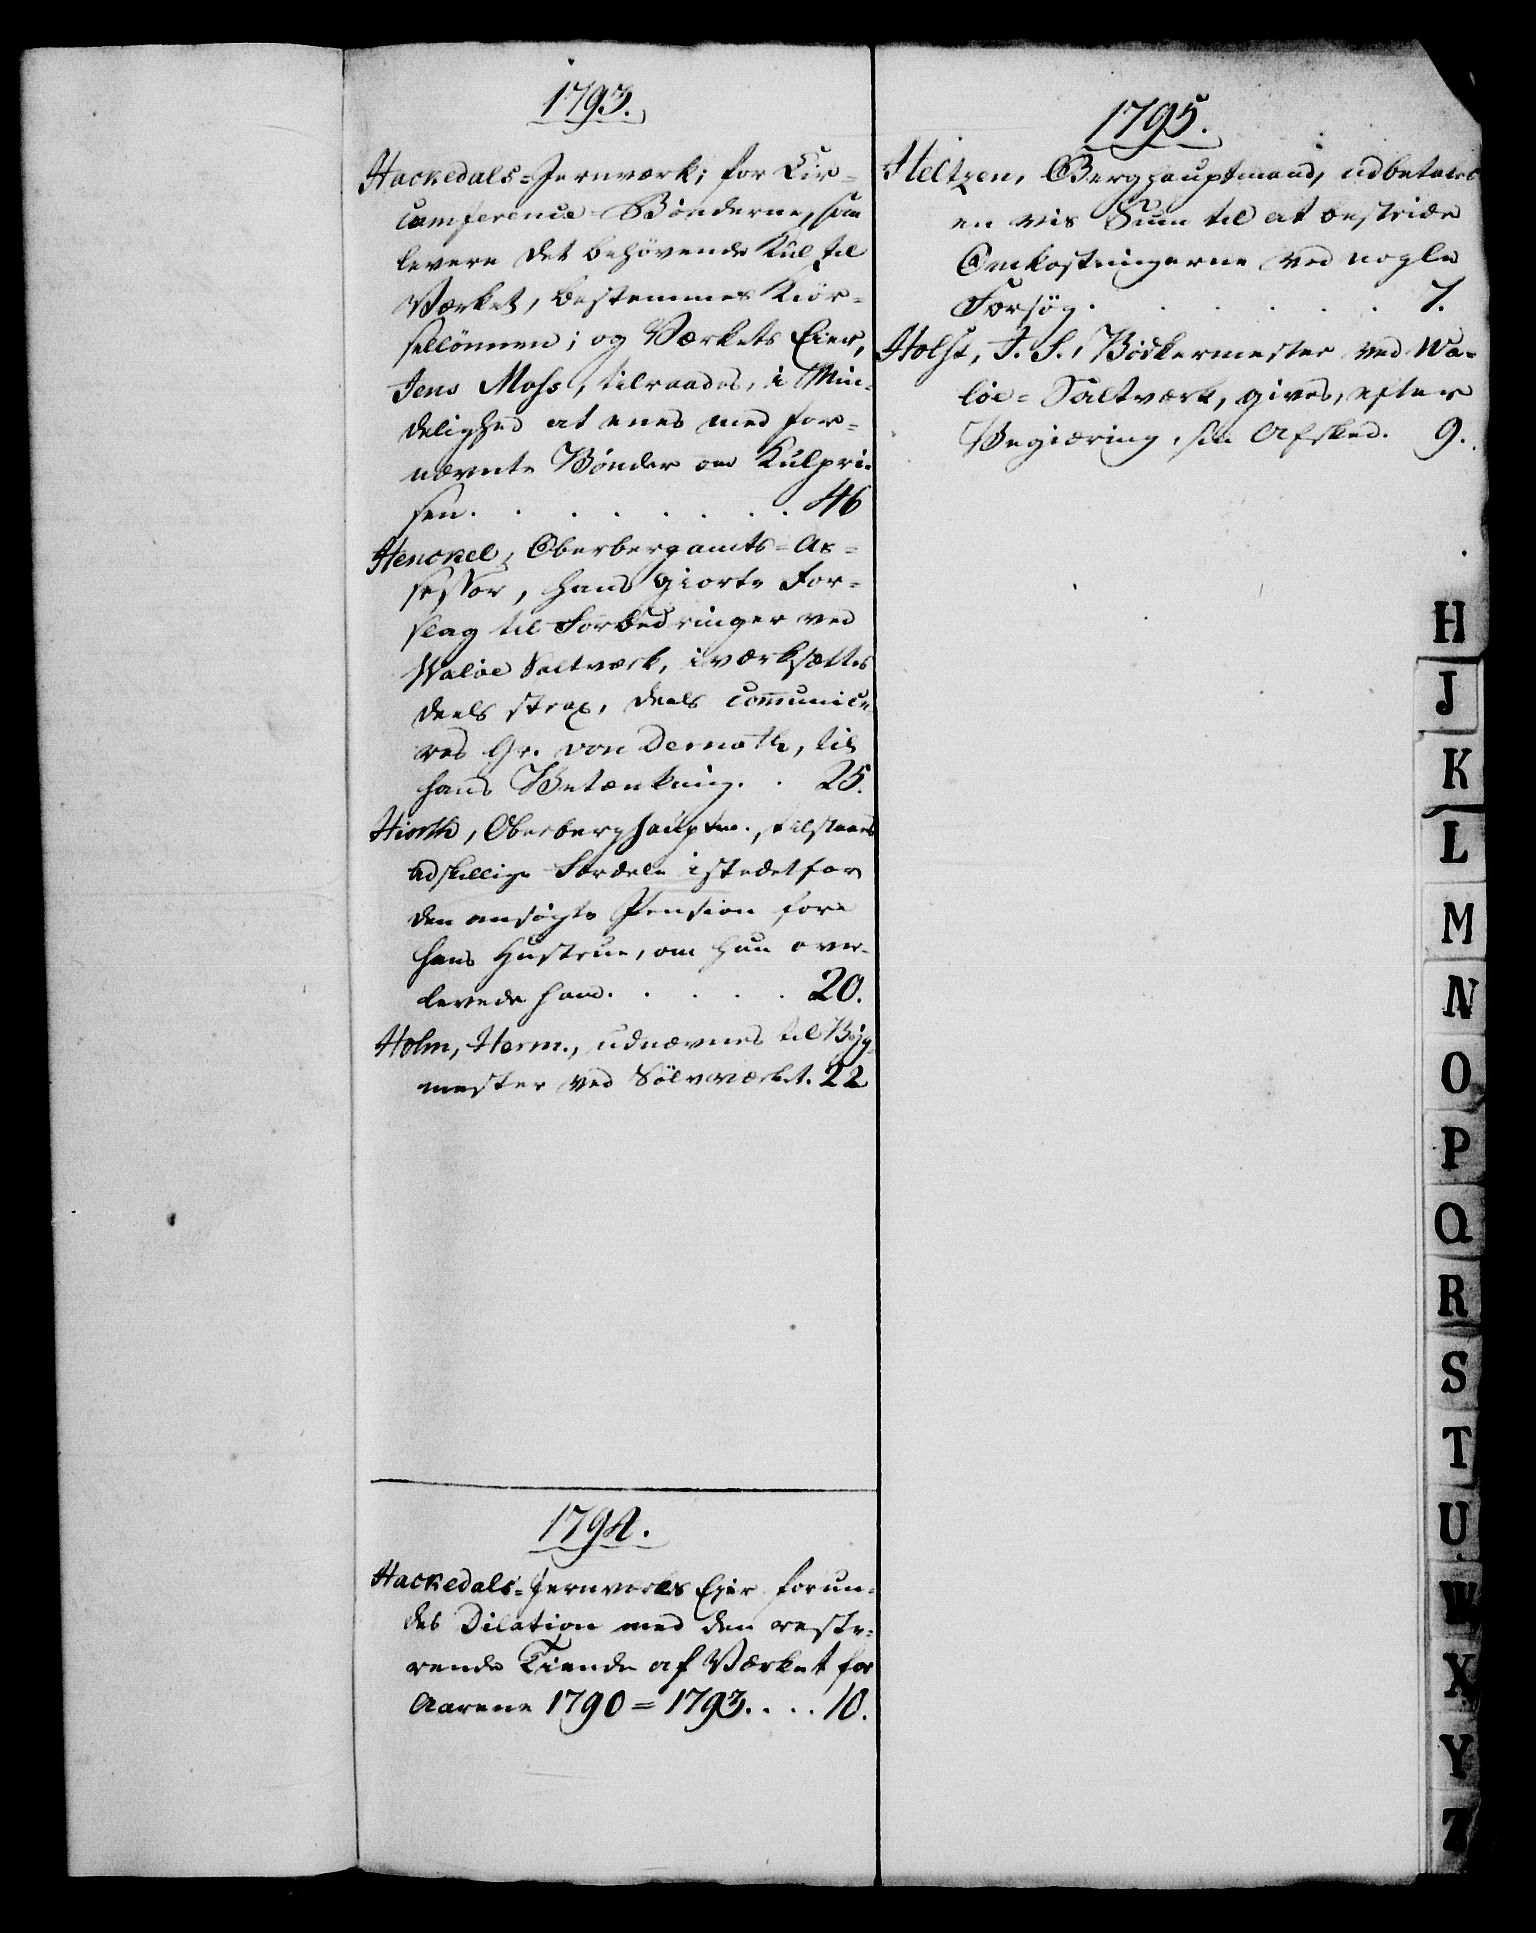 1793.
Hackedals-Jernværk; for Cir-
cumference-Bønderne, som
levere det behøvende Kul til
Værket, bestemmes Kiør-
sellønnen; og Værkets Eier,
Jens Moss, tilraades, i Min-
delighed at enes med for-
nævnte Bønder om Kulpri-
sen. . . . . . . . 46
Henckel, Oberbergamts-As-
sessor, hans giorte For-
slag til Forbedringer ved
Waløe Saltværk, iværksættes
deels strax, deels communice-
res Gr. von Dernath, til
hans Betænkning. . 25.
Hiorth, Oberberghauptm., tilstaaes
adskillige Fordele istedetfor
den ansøgte Pension for
hans Hustrue, om hun over-
levede ham. . . . . 20.
Holm, Herm., udnævnes til Byg-
mester ved Sølvværket. 22
1794.
Hackedals-Jernværks Eier forun-
des Dilation med den reste-
rende Tiende af Værket for
Aarene 1790=1793. . . . 10.
1795.
Heltzen, Berghauptmand, udbetales
en vis Sum til at bestride
Omkostningerne ved nogle
Forsøg. . . . . . 7.
Holst, J. S., Bødkermester ved Wa-
løe-Saltværk, gives, efter
Begiæring, sin Afsked. 9.
H
J
K
L
M
N
O
P
Q
R
S
T
U
W
X
Y
Z